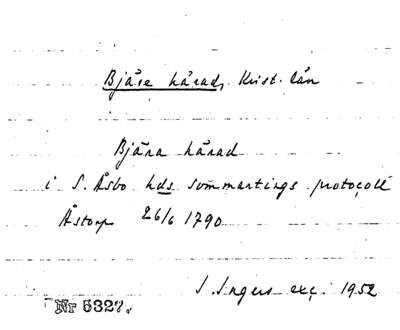 Bjäre härad, Krist. län
Bjära härad
i S. Åsbo hds sommartings protocoll
Åstorp 26/6 1790
I. Ingers exc. 1952
Nr 5327.